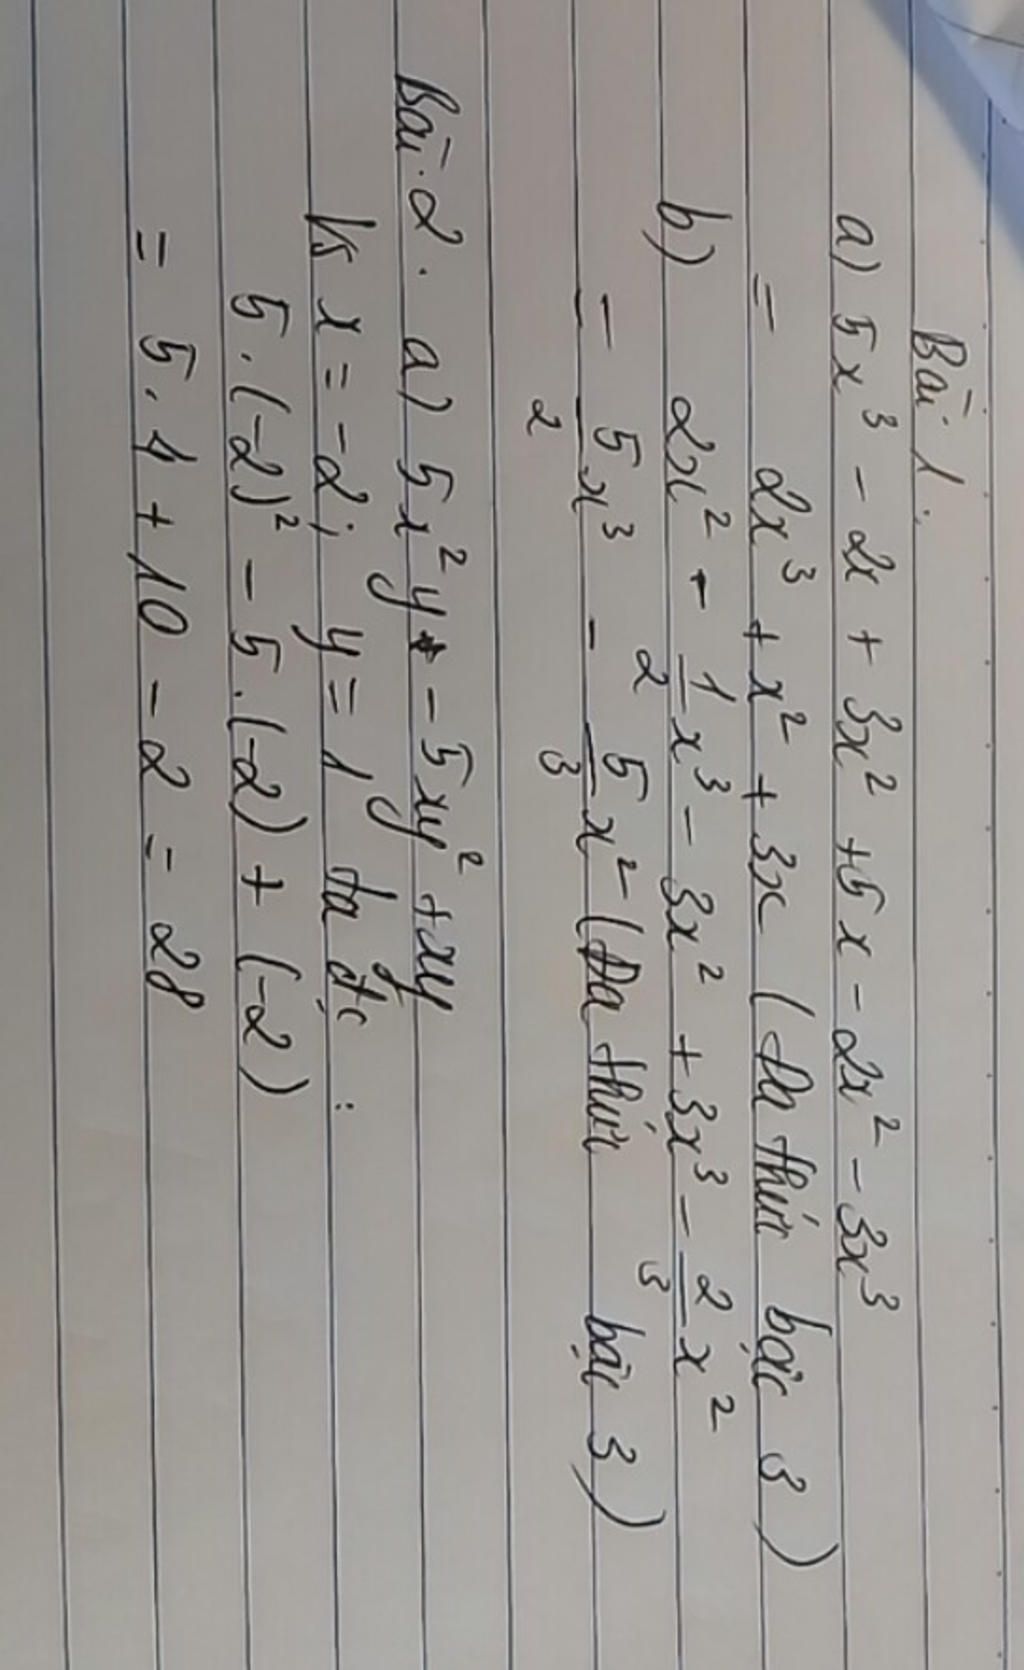 Bài 1.
a) 5x³ - 2x + 3x² + 5x - 2x² - 3x³
= 2x³ + x² + 3x (Đa thức bậc 3)
b) 2x² - 1/2 x³ - 3x² + 3x³ - 2/3 x²
= 5/2 x³ - 5/3 x² (Đa thức bậc 3)
Bài 2. a) 5x²y - 5xy² + xy
Vs x = -2; y = 1 ta đc :
5.(-2)² - 5.(-2) + (-2)
= 5.4 + 10 - 2 = 28